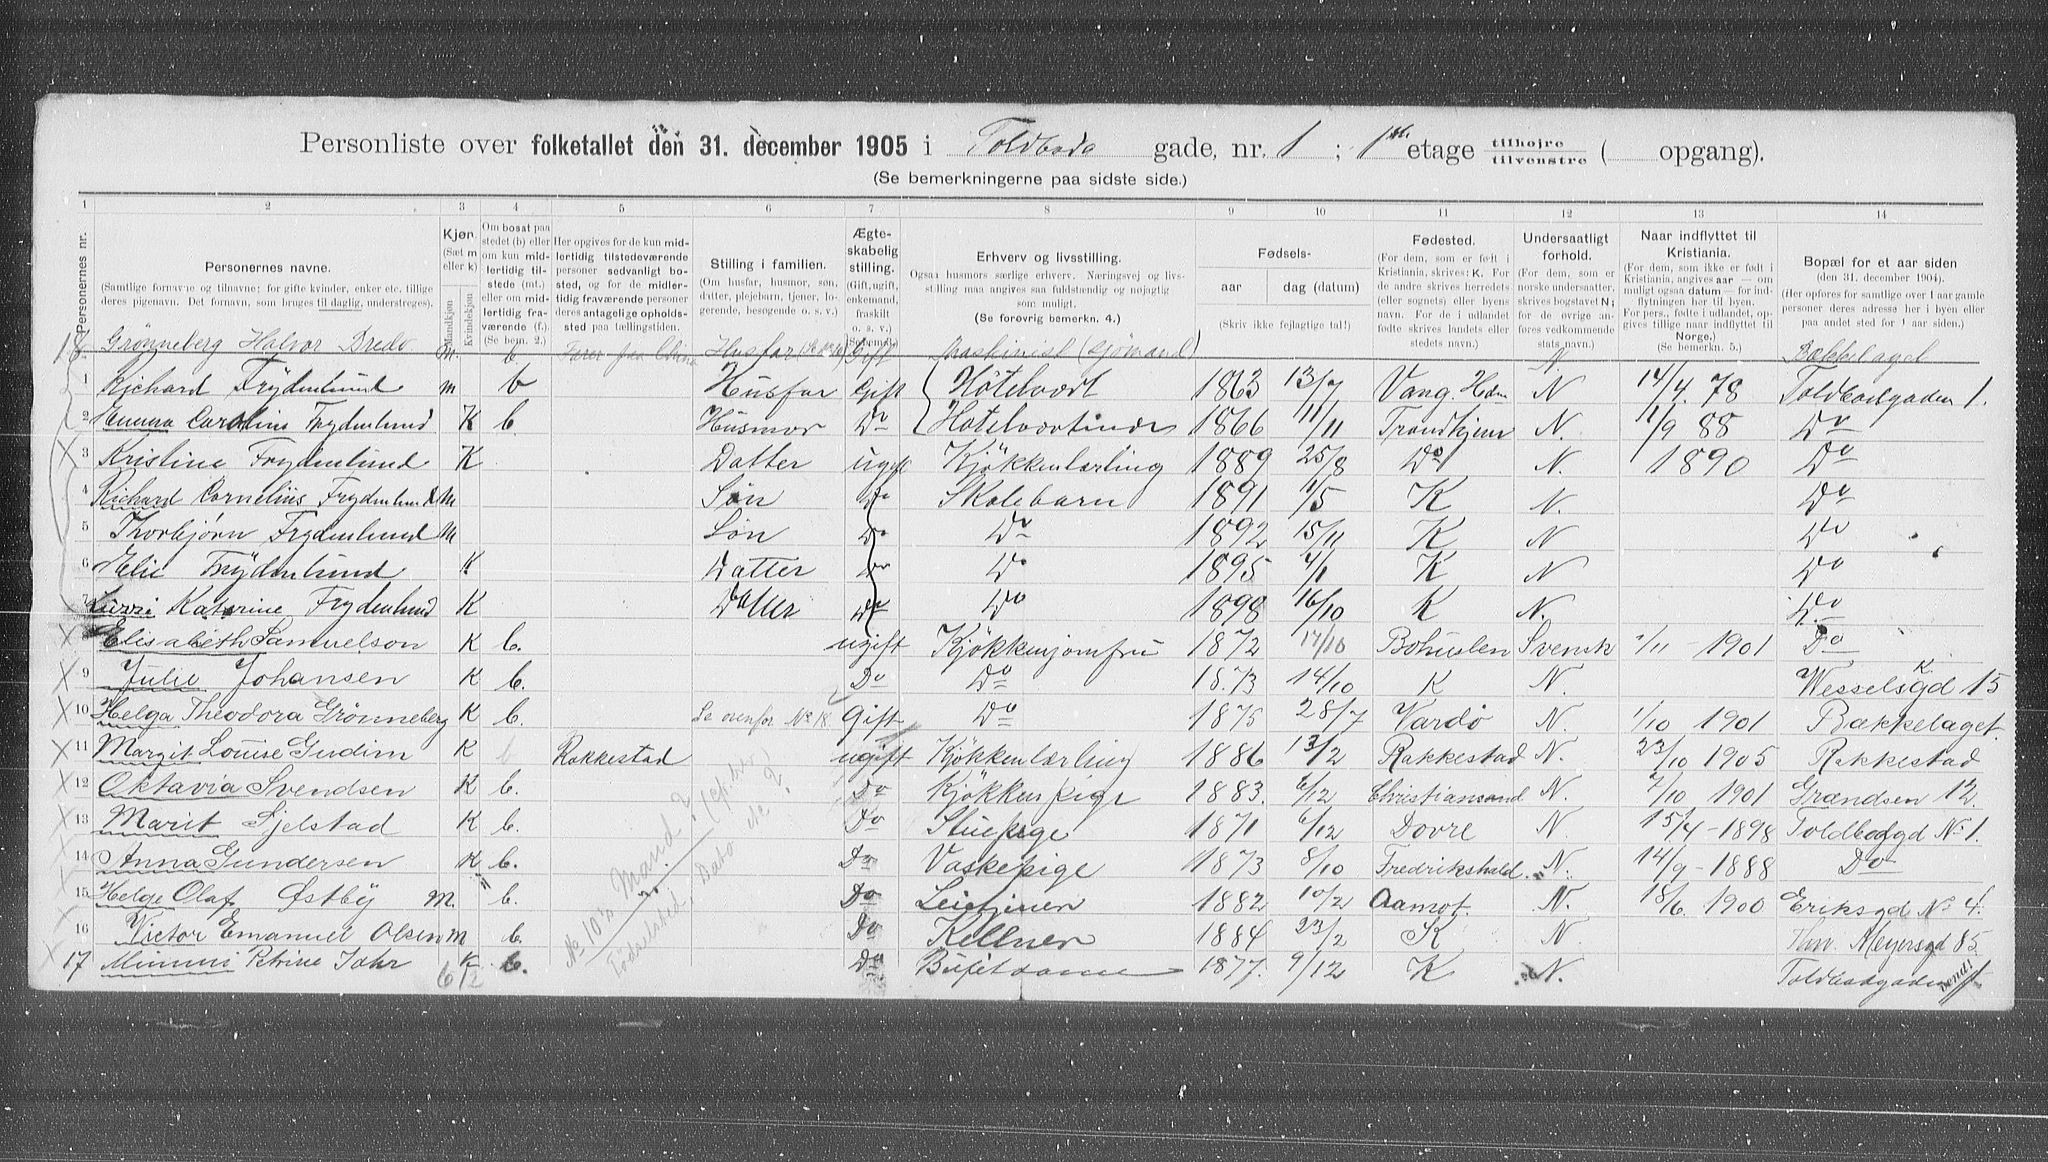 Personliste over folketallet den 31. december 1905 i Toldbod gade, nr. 1 ; 1ste etage tilhøjre tilvenstre ( opgang).
(Se bemerkningerne paa sidste side.)
1 2 3 4 5 6 7 8 9 10 11 12 13 14
Personernes nr.
Personernes navne.
(Samtlige fornavne og tilnavne; for gifte kvinder, enker etc. tillige deres pigenavn. Det fornavn, som bruges til daglig, understreges).
Kjøn. (Sæt m eller k)
Mandkjøn Kvindekjøn
Om bosat paa stedet (b) eller om kun midlertidig tilstede (mt.) eller om midlertidig fraværende (f.) (Se bem. 2.)
Her opgives for de kun midlertidig tilstedeværende personer sedvanligt bosted, og for de midlertidig fraværende personer deres antagelige opholdssted paa tællingstiden.
Stilling i familien.
(Om husfar, husmor, søn, datter, plejebarn, tjener, logerende, besøgende o. s. v.)
Ægteskabelig stilling.
(Gift, ugift, enkemand, fraskilt o. s. v.)
Erhverv og livsstilling.
Ogsaa husmors særlige erhverv. Næringsvej og livsstilling maa angives saa fuldstændig og nøjagtig som muligt.
(Se forøvrig bemerkn. 4.)
Fødsels-
aar dag (datum)
(Skriv ikke fejlagtige tal!)
Fødested.
(For dem, som er født i Kristiania, skrives: K. For de andre skrives herredets (eller sognets) eller byens navn. For de i udlandet fødte skrives landets eller stedets navn).
Undersaatligt forhold.
(For dem, som er norske undersaatter, skrives bogstavet N; for de øvrige anføres vedkommende stats navn).
Naar indflyttet til Kristiania.
(For dem, som ikke er født i Kristiania, angives aar — om muligt ogsaa datum — for indflytningen her til byen. For pers., fødte i udlandet, opgives tillige naar indflyttet til Norge.) (Se bemerkn. 5.)
Bopæl for et aar siden
(den 31. december 1904).
(Her opføres for samtlige over 1 aar gamle personer deres adresse her i byen eller paa andet sted for 1 aar siden.)
18 Grönneberg Halvor m. b Husfar Gift Maskinist (Sjömand) N Bækkelaget
1 Richard Frydenlund m b Husfar Gift Hotelvært 1863 13/7 Vang. Hdm N 14/4. 78 Toldbodgaden 1.
2 Emma Caroline Frydenlund K b. Husmor Do Hotelværtinde 1866 11/11 Trondhjem N. 11/9 88 Do
3 Kristine Frydenlund K Datter ugift Kjökkenlærling 1889 25/8 Do N. 1890 Do
4 Richard Cornelius Frydenlund M Sön Do Skolebarn 1891 1/5 K N. Do
5 Thorbjørn Frydenlund M Søn Do Do 1892 15/11 K N Do
6 Elie Frydenlund K Datter Do Do 1895 4/1 K N Do
7 Katrine Frydenlund K Datter Do Do 1898 16/10 K N. Do
Elisabeth Samuelson K b. ugift Kjøkkenjomfru 1872 17/10 Bohuslen Svensk 1/11 1901 Do
9 Julie Johansen K b. Do Do 1873 14/10 K N. Wesselsgd 15 K
10 Helga Theodora Grønneberg K b. Se ovenfor No 18 Gift Do 1875 28/7 Vardø N. 1/10 1901 Bækkelaget.
11 Margit Louise Gudim K b Rakkestad ugift Kjøkkenlærling 1886 13/2 Rakkestad N. 23/10 1905 Rakkestad
12 Oktavia Svendsen K b. Do Kjøkkenpige 1883. 6/12 Christiansand N. 2/10 1901 Grændsen 12.
13 Marit Sjelstad K b. Do Stuepige 1871 6/12 Dovre N 15/4 - 1898 Toldbodgd No 1.
14 Anna Gundersen K b. Do Vaskepige 1873 8/10 Fredrikshald N. 14/9 - 1888 Do
15 Helge Olaf Østby M. b. Do 1882 10/2 Aamot. N. 18/6. 1900 Eriksgd No 4.
16 Victor Emanuel Olsen M b. Do Kellner 1884 23/2 K N Thv. Meyersgd 85.
17 Petrine Jahr K b. Do Büfetdame 1877. 9/12 K N. Toldbodgaden 1
No 10's Mand?
Fødselsted, Dato
6 12
Vend!